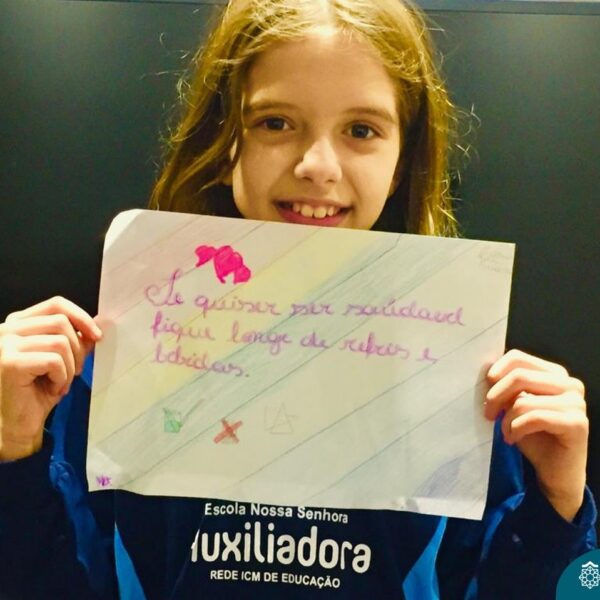 Se quiser ser saúdavel
fique longe de refris e
bebidas.
Escola Nossa Senhora
Auxiliadora
REDE ICM DE EDUCAÇÃO